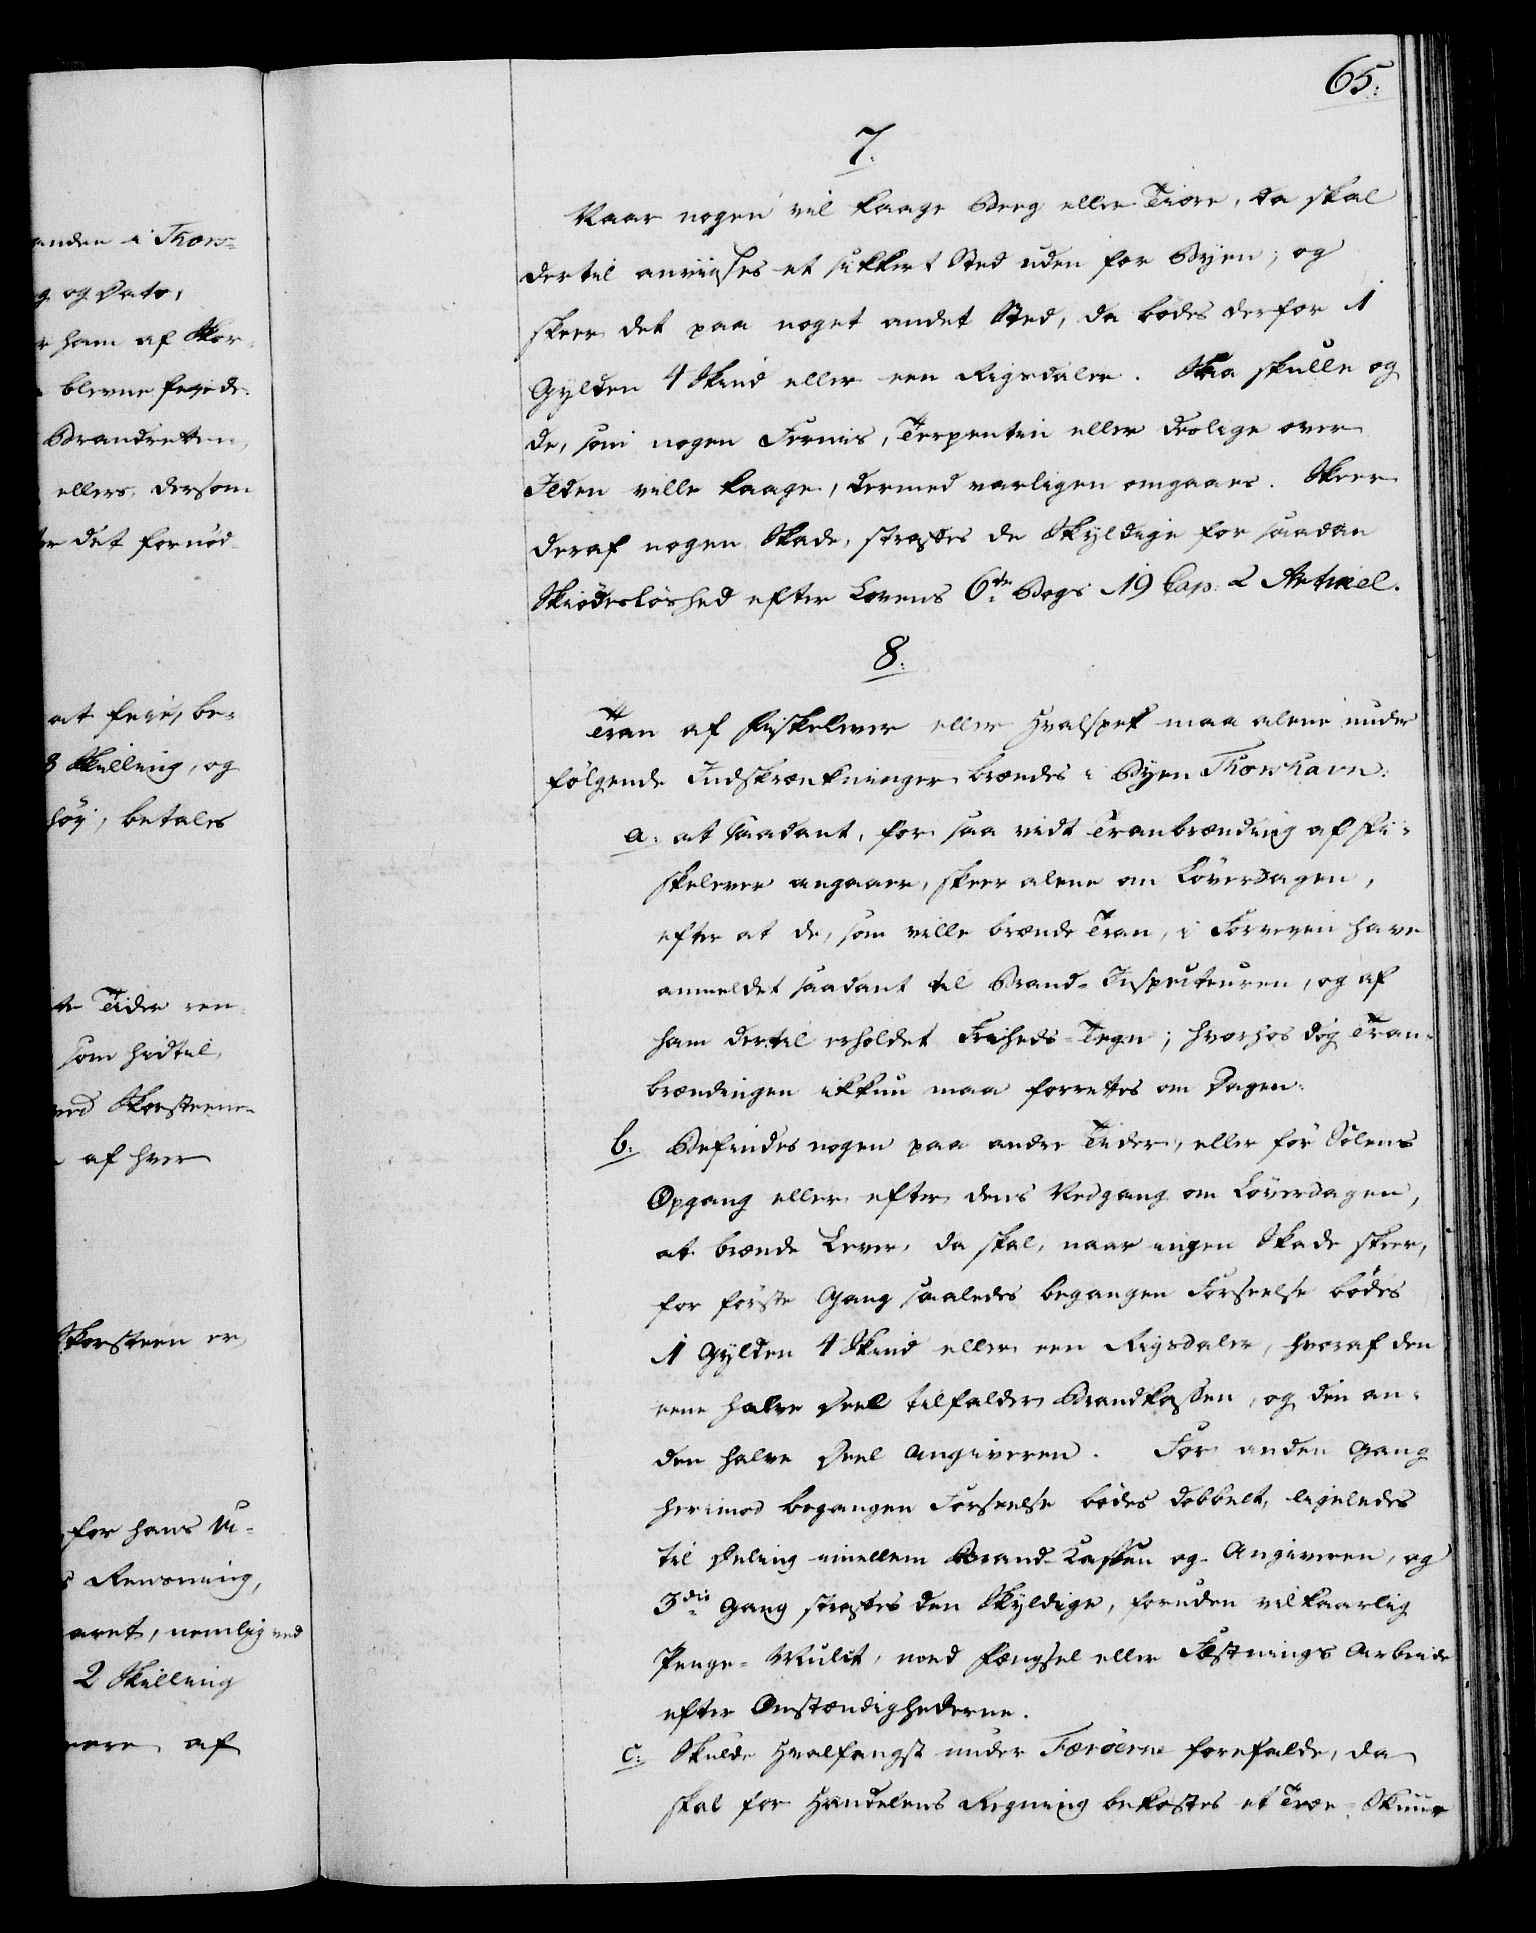 anden i Thors-
g og Dato,
r ham af Skor-
blevne feyede.
Brandretten,
ellers, dersom
r det fornød-
at feie, be-
8 Skilling, og
høy, betales
te Tider ren-
som hidtil,
ved Skorsteene-
af hver
Skorsteen er,
for hans U-
s Rensning,
aret, nemlig ved
2 Skilling
eere af
65.
7.
Naar nogen vil kaage Beeg eller Tiære, da skal
dertil anviises et sikkert Sted uden for Byen; og
skeer det paa noget andet Sted, da bødes derfor 1
Gylden 4 Skind eller een Rigsdaler. Saa skulle og
de, som nogen Fernis, Terpentin eller deslige over
Ilden ville kaage, dermed varligen omgaaes. Skeer
deraf nogen Skade, straffes de Skyldige for saadan
Skiødesløshed efter Lovens 6te Bogs 19 Cap. 2 Artikel.
8.
Tran af Fiskelever eller Hvalspek maa alene under
følgende Indskrænkninger brændes i Byen Thorshavn:
a. at saadant, for saa vidt Tranbrænding af Fi-
skelever angaaer, skeer alene om Løverdagen,
efter at de, som ville brænde Tran, i Forveien have
anmeldet saadant til Brand-Inspecteuren, og af
ham dertil erholdet Friheds-Tegn; hvorhos dog Tran-
brændingen ikkun maa forrettes om Dagen.
b. Befindes nogen paa andre Tider, eller før Solens
Opgang eller efter dens Nedgang om Løverdagen,
at brænde Lever, da skal, naar ingen Skade skeer,
for første Gang saaledes begangen Forseelse bødes
1 Gylden 4 Skind eller een Rigsdaler, hvoraf den
eene halve Deel tilfalder Brandkassen, og den an-
den halve Deel Angiveren. For anden Gang
herimod begangen Forseelse bødes dobbelt, ligeledes
til Deling imellem Brand-Cassen og Angiveren, og
3die Gang straffes den Skyldige, foruden vilkaarlig
Penge-Mulct, med Fængsel eller Fæstnings Arbeide
efter Omstændighederne.
c. Skulde Hvalfangst under Færöerne forefalde, da
skal for Handelens Regning bekostes et Træ-Skuur